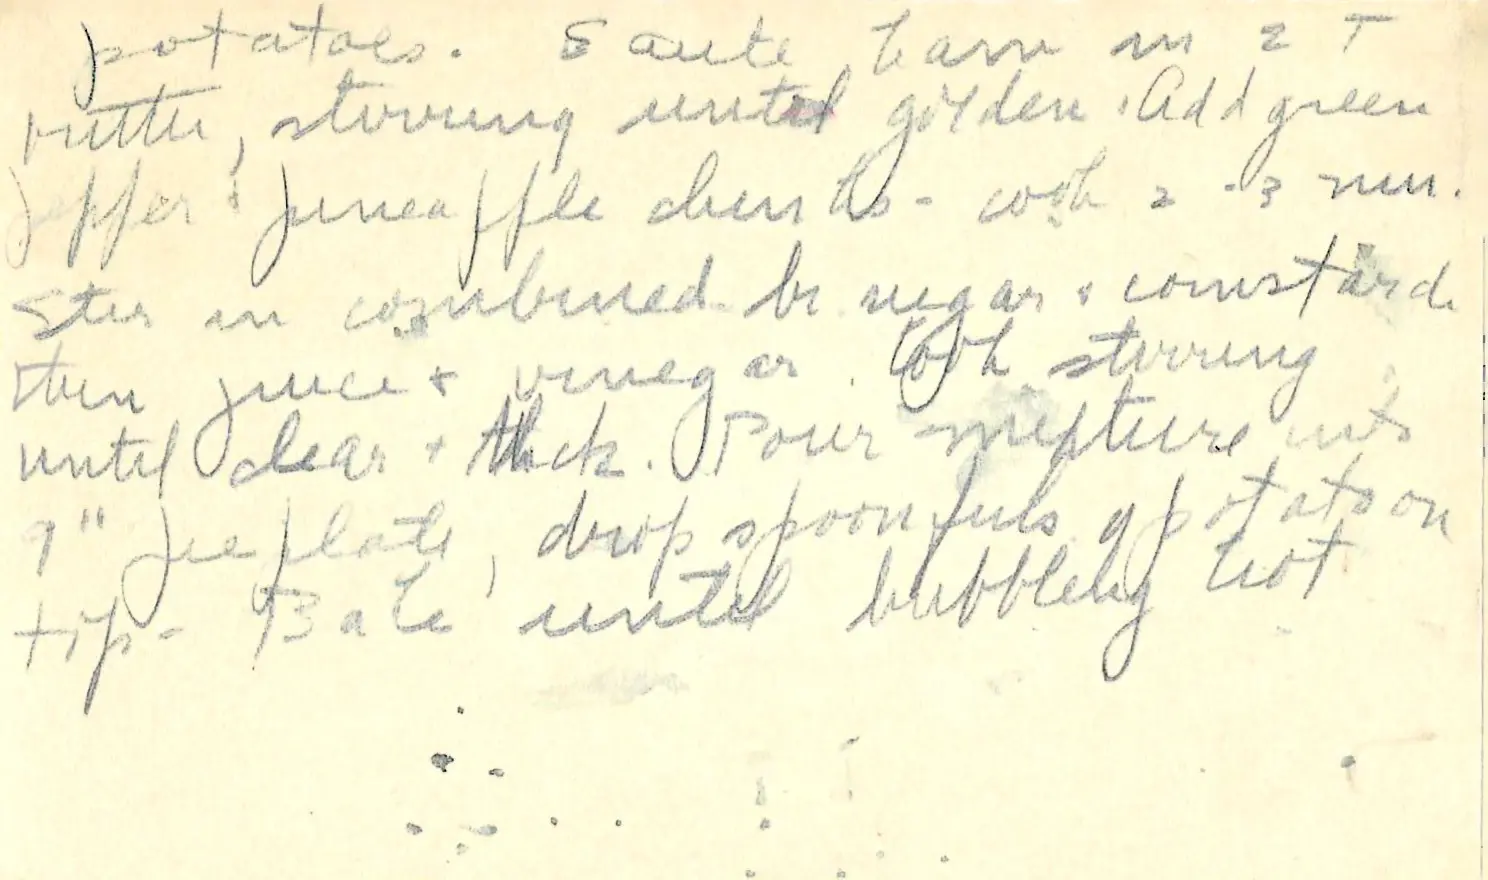 potatoes. Saute ham in 2 T
butter, stirring until golden. Add green
pepper & pineapple chunks - cook 2 - 3 min.
Stir in combined br sugar & cornstarch
then juice & vinegar. Cook stirring
until clear + thick. Pour mixture into
9" pie plate, drop spoonfuls of potato on
top - Bake until bubbling hot